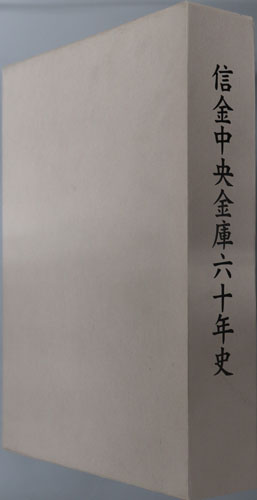 信金中央金庫六十年史